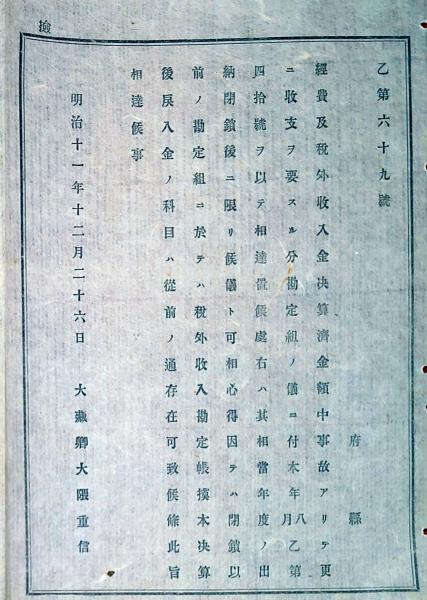 撿
乙第六十九號
府縣
經費及税外收入金决算濟金領中事故アリテ更
ニ收支ヲ要スル分勘定組ノ儀ニ付本年八月乙第
四拾號ヲ以テ相達置候處右ハ其相當年度ノ出
納閉鎖後ニ限リ候儀ト可相心得因テハ閉鎖以
前ノ勘定組ニ於テハ税外收入勘定帳摸本决算
後戾入金ノ科目ハ從前ノ通存在可致候條此旨
相達候事
明治十一年十二月二十六日 大藏卿大隈重信